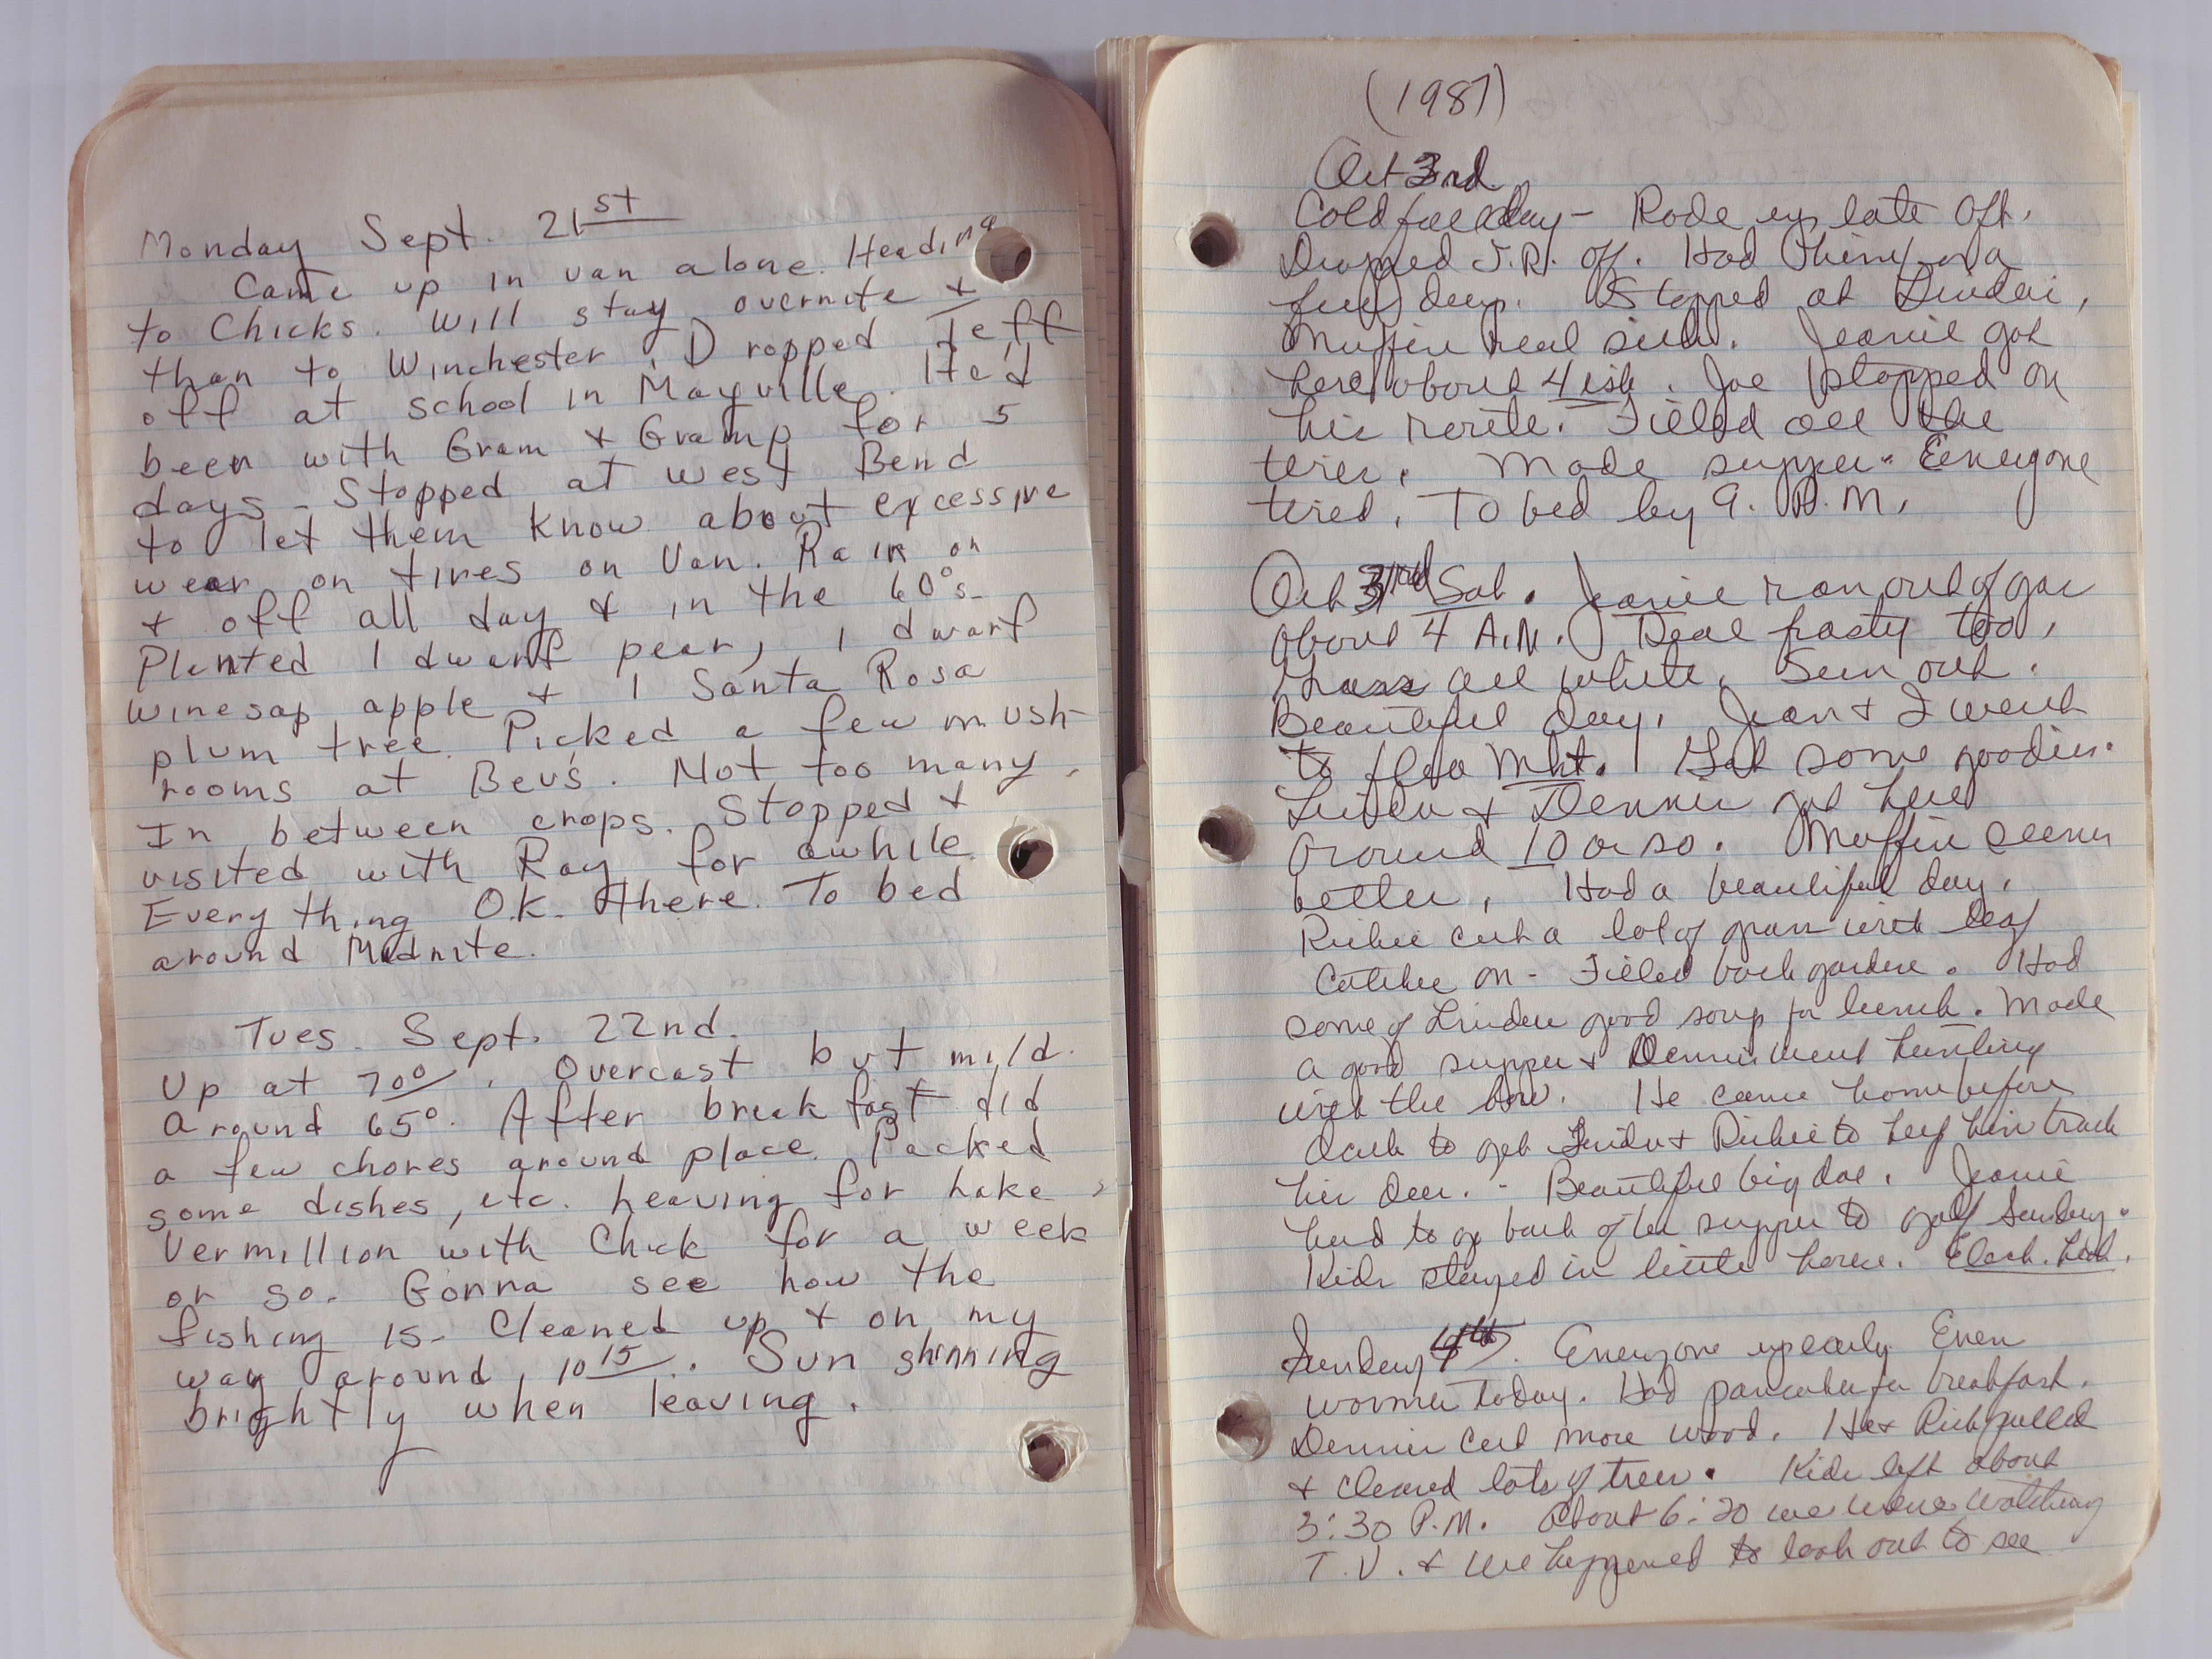 Monday Sept. 21st
Came up in van alone. Heading
to Chicks. Will stay overnite +
than to Winchester. Dropped Jeff
off at school in Mayville. He'd
been with Gram & Gramp for 5
days - Stopped at West Bend
to let them know about excessive
wear on tires on Van. Rain on
+ off all day & in the 60°s-
Planted 1 dwarf pear, 1 dwarf
winesap apple & 1 Santa Rosa
plum tree. Picked a few mush-
rooms at Bev's. Not too many,
In between crops. Stopped &
visited with Ray for awhile
Everything O.K. there. To bed
around Midnite.
Tues. Sept. 22nd.
Up at 700. Overcast but mild.
Around 65°. After breekfast did
a few chores around place. Packed
some dishes, etc. Leaving for Lake
Vermillion with Chick for a week
or so. Gonna see how the
fishing is- Cleaned up & on my
way around 10 15. Sun shinning
brightly when leaving.
(1987)
Oct 3rd.
Cold fall day - Rode up late Aft.
Dropped J.R. off. Had
deer. Stopped at Lindai,
Muffin real sick. Jeanie got
here about 4 ish. Joe stopped on
his route. Filled all the
tires. Made supper. Everyone
tired. To bed by 9. P.M.
Oct 3rd Sat. Jeanie ran out of gas
about 4 A.M. Real frosty too,
Grass all white. Sun out.
Beautiful day. Jean & I went
to flea Mkt. Got some goodies.
Linda & Dennis got here
around 10 or so. Muffin seems
better. Had a beautiful day.
Richie cut a lot of grass with leaf
catcher on - Tilled back garden. Had
some of Lindas good soup for lunch. Made
a good supper & Dennis went hunting
with the bow. He came home before
dark to get Linda & Richie to help him track
his deer. - Beautiful big doe. Jeanie
had to go back after supper to golf Sunday.
Kids stayed in little house. Elect. heat.
Sunday 4th. Everyone up early. Even
warmer today. Had pancakes for breakfast.
Dennis cut more wood. He & Rich pulled
& cleared lots of trees. Kids left about
3:30 P.M. About 6:20 we were watching
T.V. & we happened to look out to see